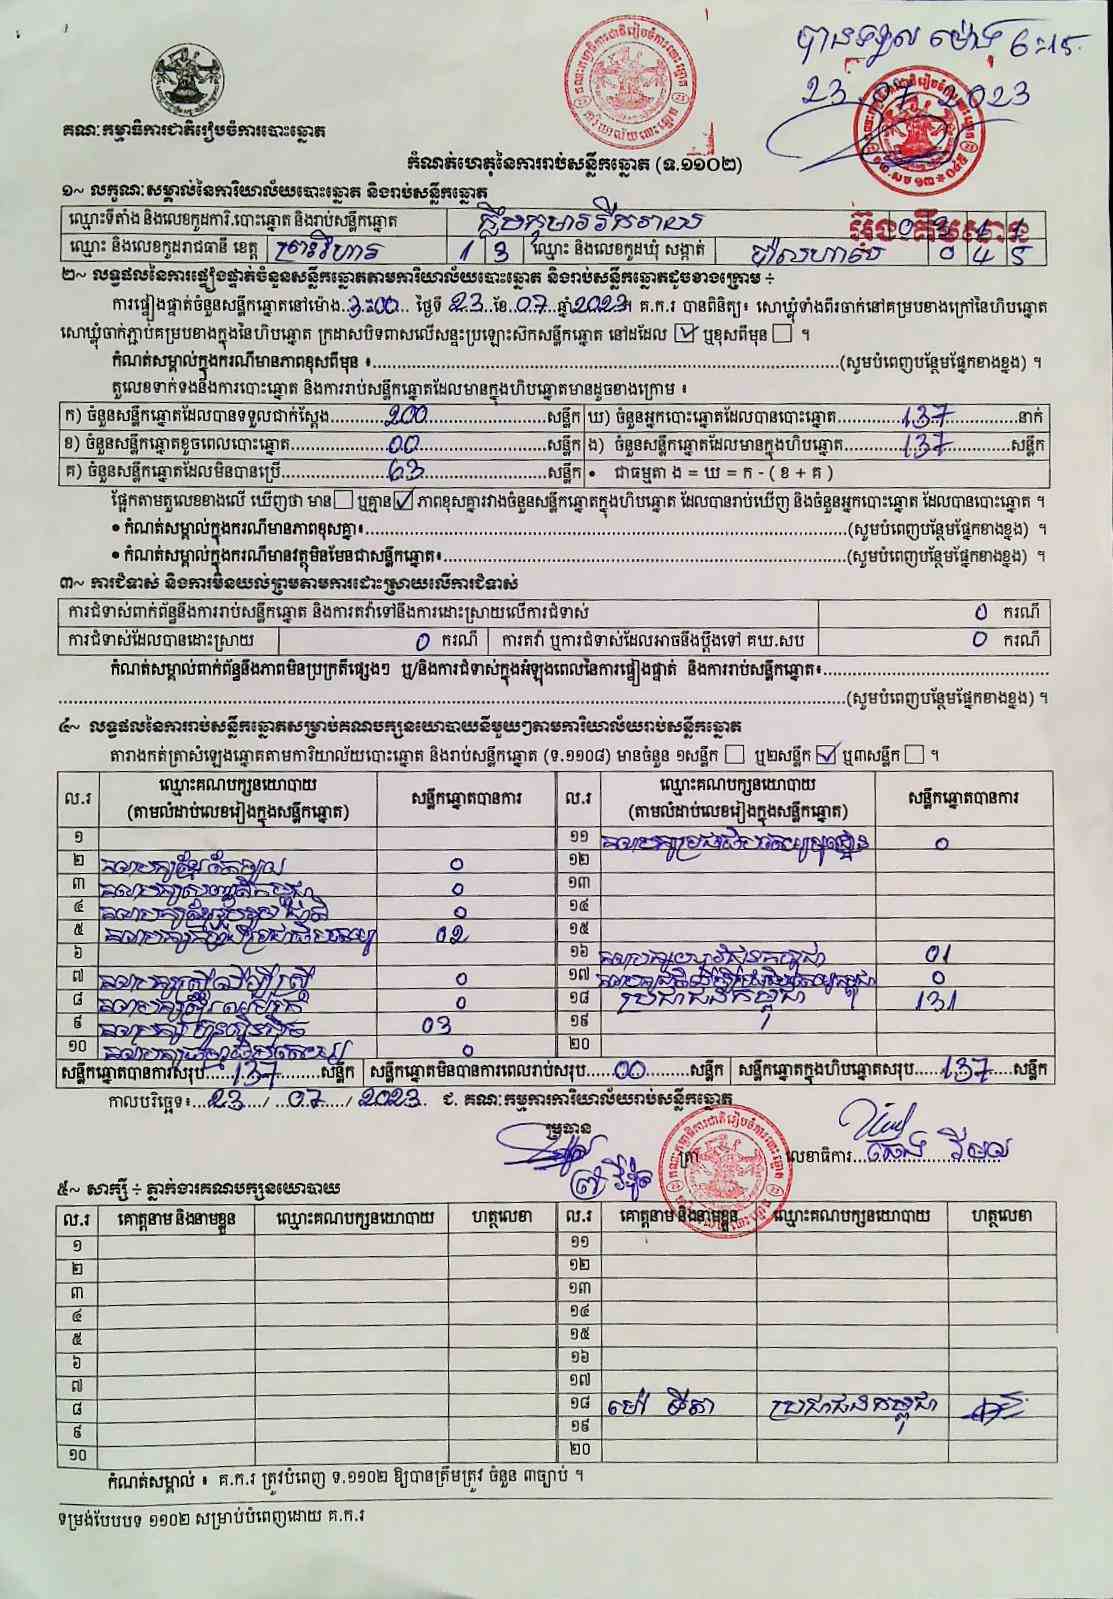 បានទទួល ម៉ោង 6:15
23.07.2023
គណៈកម្មាធិការជាតិរៀបចំការបោះឆ្នោត
កំណត់ហេតុនៃការរាប់សន្លឹកឆ្នោត (ទ.១១០២)
១~ លក្ខណៈសម្គាល់នៃការិយាល័យបោះឆ្នោត និងរាប់សន្លឹកឆ្នោត
ឈ្មោះទីតាំង និងលេខកូដការិ.បោះឆ្នោត និងរាប់សន្លឹកឆ្នោត
ឈ្មោះ និងលេខកូដរាជធានី ខេត្ត ព្រះវិហារ 1 3 ឈ្មោះ និងលេខកូដឃុំ សង្កាត់ ប៉ាលហាល 0 4 5
២~ លទ្ធផលនៃការផ្ទៀងផ្ទាត់ចំនួនសន្លឹកឆ្នោតតាមការិយាល័យបោះឆ្នោត និងរាប់សន្លឹកឆ្នោតដូចខាងក្រោម ÷
ការផ្ទៀងផ្ទាត់ចំនួនសន្លឹកឆ្នោតនៅម៉ោង 3:00 ថ្ងៃទី 23 ខែ 07 ឆ្នាំ 2023 ។ គ.ក.រ បានពិនិត្យ៖ សោឃ្លុំទាំងពីរចាក់នៅគម្របខាងក្រៅនៃហិបឆ្នោត
សោឃ្លុំចាក់ភ្ជាប់គម្របខាងក្នុងនៃហិបឆ្នោត ក្រដាសបិទពាសលើសន្ទះប្រឡោះស៊កសន្លឹកឆ្នោត នៅដដែល ☑ ឬខុសពីមុន ☐ ។
កំណត់សម្គាល់ក្នុងករណីមានភាពខុសពីមុន ៖ (សូមបំពេញបន្ថែមផ្នែកខាងខ្នង) ។
តួលេខទាក់ទងនឹងការបោះឆ្នោត និងការរាប់សន្លឹកឆ្នោតដែលមានក្នុងហិបឆ្នោតមានដូចខាងក្រោម ៖
ក) ចំនួនសន្លឹកឆ្នោតដែលបានទទួលជាក់ស្តែង 200 សន្លឹក ឃ) ចំនួនអ្នកបោះឆ្នោតដែលបានបោះឆ្នោត 137 នាក់
ខ) ចំនួនសន្លឹកឆ្នោតខូចពេលបោះឆ្នោត 00 សន្លឹក ង) ចំនួនសន្លឹកឆ្នោតដែលមានក្នុងហិបឆ្នោត 137 សន្លឹក
គ) ចំនួនសន្លឹកឆ្នោតដែលមិនបានប្រើ 63 សន្លឹក • ជាធម្មតា ង = ឃ = ក - ( ខ + គ )
ផ្អែកតាមតួលេខខាងលើ ឃើញថា មាន ☐ ឬគ្មាន ☑ ភាពខុសគ្នារវាងចំនួនសន្លឹកឆ្នោតក្នុងហិបឆ្នោត ដែលបានរាប់ឃើញ និងចំនួនអ្នកបោះឆ្នោត ដែលបានបោះឆ្នោត ។
• កំណត់សម្គាល់ក្នុងករណីមានភាពខុសគ្នា៖ (សូមបំពេញបន្ថែមផ្នែកខាងខ្នង) ។
• កំណត់សម្គាល់ក្នុងករណីមានវត្ថុមិនមែនជាសន្លឹកឆ្នោត៖ (សូមបំពេញបន្ថែមផ្នែកខាងខ្នង) ។
៣~ ការជំទាស់ និងការមិនយល់ព្រមតាមការដោះស្រាយលើការជំទាស់
ការជំទាស់ពាក់ព័ន្ធនឹងការរាប់សន្លឹកឆ្នោត និងការតវ៉ាទៅនឹងការដោះស្រាយលើការជំទាស់ 0 ករណី
ការជំទាស់ដែលបានដោះស្រាយ 0 ករណី ការតវ៉ា ឬការជំទាស់ដែលអាចនឹងប្តឹងទៅ គឃ.សប 0 ករណី
កំណត់សម្គាល់ពាក់ព័ន្ធនឹងភាពមិនប្រក្រតីផ្សេងៗ ឬ/និងការជំទាស់ក្នុងអំឡុងពេលនៃការផ្ទៀងផ្ទាត់ និងការរាប់សន្លឹកឆ្នោត៖
(សូមបំពេញបន្ថែមផ្នែកខាងខ្នង) ។
៤~ លទ្ធផលនៃការរាប់សន្លឹកឆ្នោតសម្រាប់គណបក្សនយោបាយនីមួយៗតាមការិយាល័យរាប់សន្លឹកឆ្នោត
តារាងកត់ត្រាសំឡេងឆ្នោតតាមការិយាល័យបោះឆ្នោត និងរាប់សន្លឹកឆ្នោត (ទ.១១០៨) មានចំនួន ១សន្លឹក ☐ ឬ២សន្លឹក ☑ ឬ៣សន្លឹក ☐ ។
ល.រ ឈ្មោះគណបក្សនយោបាយ សន្លឹកឆ្នោតបានការ ល.រ ឈ្មោះគណបក្សនយោបាយ សន្លឹកឆ្នោតបានការ
(តាមលំដាប់លេខរៀងក្នុងសន្លឹកឆ្នោត) (តាមលំដាប់លេខរៀងក្នុងសន្លឹកឆ្នោត)
១ ១១ 0
២ 0 ១២
៣ 0 ១៣
៤ គណបក្សខ្មែររួបរួមជាតិ 0 ១៤
៥ 02 ១៥
៦ ១៦ គណបក្សយុវជនកម្ពុជា 01
៧ 0 ១៧ 0
៨ 0 ១៨ ប្រជាជនកម្ពុជា 131
៩ គណបក្សហ៊្វុនស៊ិនប៉ិច 03 ១៩
១០ 0 ២០
សន្លឹកឆ្នោតបានការសរុប 137 សន្លឹក សន្លឹកឆ្នោតមិនបានការពេលរាប់សរុប 00 សន្លឹក សន្លឹកឆ្នោតក្នុងហិបឆ្នោតសរុប 137 សន្លឹក
កាលបរិច្ឆេទ៖ 23 / 07 / 2023 ជ. គណៈកម្មការការិយាល័យរាប់សន្លឹកឆ្នោត
ប្រធាន
ត្រា លេខាធិការ ឆេង វីមល
៥~ សាក្សី ÷ ភ្នាក់ងារគណបក្សនយោបាយ
ល.រ គោត្តនាម និងនាមខ្លួន ឈ្មោះគណបក្សនយោបាយ ហត្ថលេខា ល.រ គោត្តនាម និងនាមខ្លួន ឈ្មោះគណបក្សនយោបាយ ហត្ថលេខា
១ ១១
២ ១២
៣ ១៣
៤ ១៤
៥ ១៥
៦ ១៦
៧ ១៧
៨ ១៨ ម៉ៅ ទីតា ប្រជាជនកម្ពុជា
៩ ១៩
១០ ២០
កំណត់សម្គាល់ ៖ គ.ក.រ ត្រូវបំពេញ ទ.១១០២ ឱ្យបានត្រឹមត្រូវ ចំនួន ៣ច្បាប់ ។
ទម្រង់បែបបទ ១១០២ សម្រាប់បំពេញដោយ គ.ក.រ